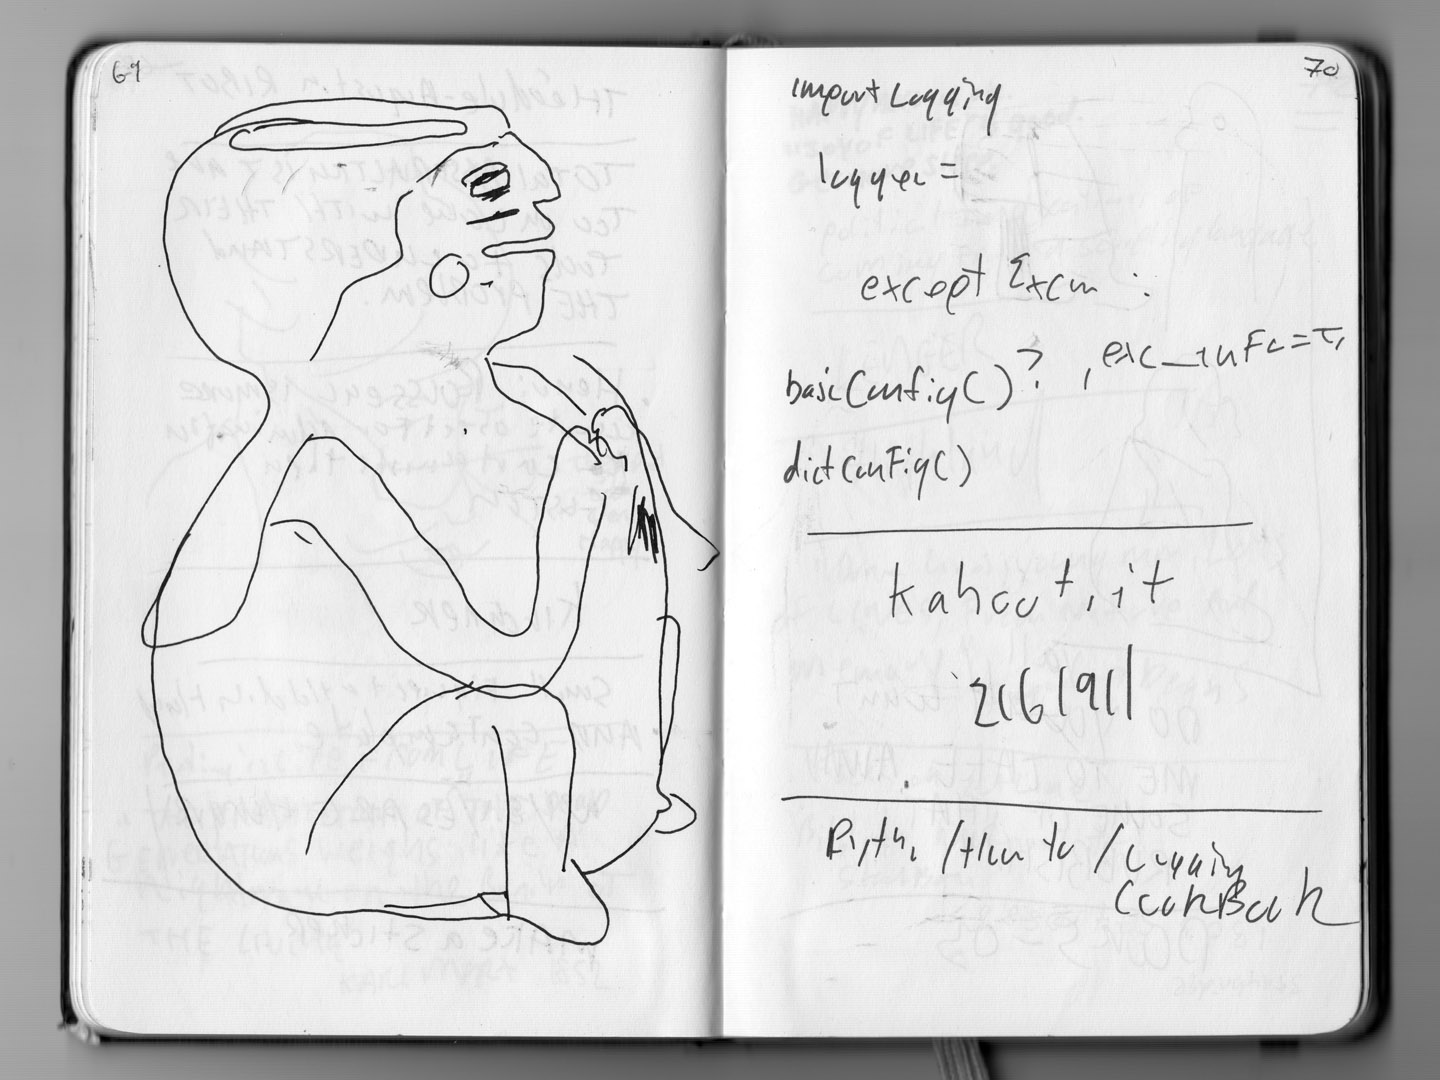 69
70
import Logging
logger =
except Excm :
basicConfig()? , exc_info=T,
dictConfig()
kahoot.it
2161911
/How to / Logging
CookBook